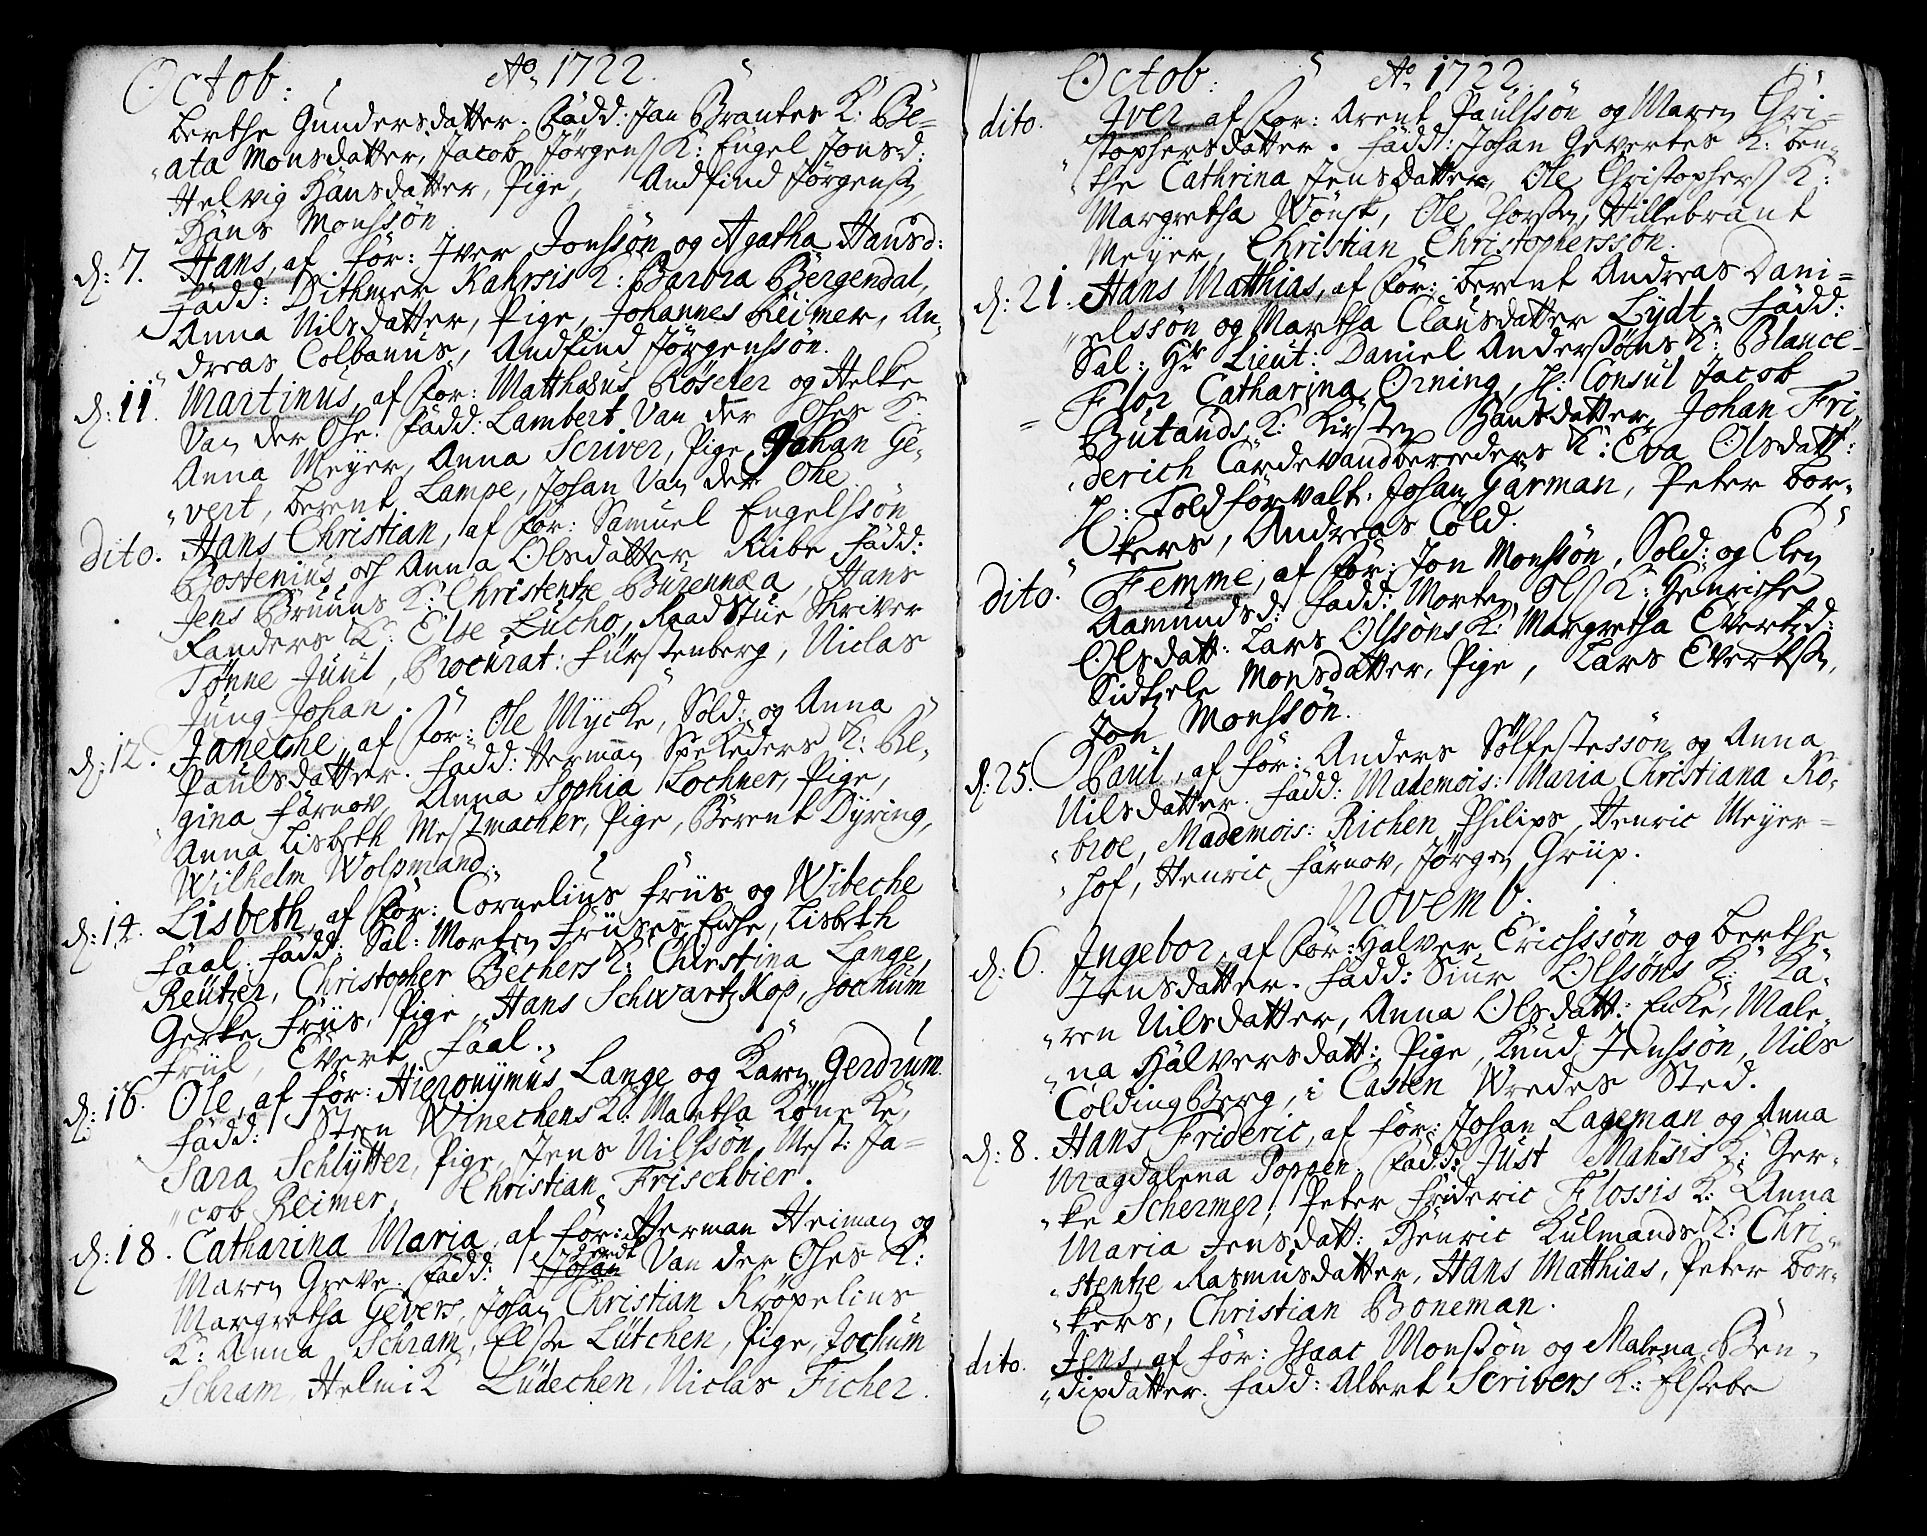 Octob: Ao 1722.
berthe Gundersdatter. Fadd: Jan Brantes K: Be-
ata Monsdatter, Jacob Jørgens K: Engel Jonsd:
Helvig Hansdatter, Pige, Andfind Jørgens
Hans Monssøn
d: 7. Hans, af For: Iver Jonssøn og Agatha Hansd:
Fadd: Dithmer Kahrsis K: Barbra Bergendal,
Anna Nilsdatter, Pige, Johannes Reimer, An-
dreas Colbanus, Andfind Jørgenssøn.
d: 11. Martinus, af For: Matthæus Røseler og Helke
Van der Ohe. Fadd: Lambert Van der Ohes K:
Anna Meyer, Anna Scriver, Pige, Johan Ge-
vert, berent Lampe, Johan Van der Ohe
dito. Hans Christian, af For: Samuel Engelssøn
Bostenius og Anna Olsdatter Riibe Fadd:
Jens Bruuns K: Christentze Buzennæa, Hans
Randers K: Else Lucho, Raadstue Skriver
Tønne Juul, Procurat: Fürstenberg, Niclas
Jung Johan.
d: 12. Janeche, af For: Ole Mycke, Sold: og Anna
Paulsdatter. Fadd: Herman Spekeders K: Re-
gina Farnov, Anna Sophia Lochner, Pige,
Anna Lisbeth Mestmacher, Pige, Berent Dyring,
Wilhelm Wolpmand.
d: 14. Lisbeth, af For: Cornelius Friis og Wibeche
Faal. Fadd: Sal: Morten Friises Enche, Lisbeth
Reutzer, Christopher Bechers K: Christina Lange,
Gerke Friis, Pige, Hans Schwartzkop, Jochum
Friil, Evert Faal.
d: 16. Ole, af For: Hieronymus Lange og Karen Gerdrum.
Fadd: Sten Winechens K: Martha Køneke,
Sara Schlytter, Pige, Jens Nilssøn, Mest: Ja-
cob Reimer, Christian Frischbier.
d: 18. Catharina Maria, af For: Herman Heiman og
Maren Greve. Fadd: Johan Van der Ohes K:
Margretha Gevers, Johan Christian Krøpelins
K: Anna Schram, Else Lütchen, Pige, Jochum
Schram, Helmik Lüdechen, Niclas Ficher.
Octob: Ao 1722.
dito. Iver, af For: Arent Paulssøn og Maren Chri-
stophersdatter. Fadd: Johan Gevertes K: ben-
the Cathrina Jensdatter, Ole Christophers K:
Margretha Wønsk, Ole Thorsen, Hillebrant
Meyer, Christian Christophersson.
d: 21. Hans Matthias, af For: berent Andreas Dani-
elssøn og Martha Clausdatter Lydt. Fadd:
Sal: Hr Lieut: Daniel Anderssøns K: Blance-
Flor Catharina Orning, H: Consul Jacob
Butauds K: Kirsten Hansdatter, Johan Fri
derich Cardevandbereeders K: Eva Olsdatt:
H: Toldforvalt: Johan Garman, Peter bor-
kers, Andreas Cold.
dito. Femme, af For: Jon Monssøn, Sold: og Elen
Aamundsd: Fadd: Morten Ols K: Henriche
Olsdatt: Lars Olssøns K: Margretha Evertzd:
Sidtzele Monsdatter, Pige, Lars Everts
Jon Monssøn.
d: 25. Paul, af For: Anders Sølfestessøn og Anna
Nilsdatter. Fadd: Mademois: Maria Christiana Ro-
broe, Mademois: Richen Philips, Henric Meyer-
hof, Henric Farnov, Jørgen Grüp.
Novemb.
d: 6. Ingebor, af For: Halver Erichssøn og berthe
Jensdatter. Fadd: Siur Olssøns K: Ka-
ren Nilsdatter, Anna Olsdatt: Enke, Male-
na Halversdatt: Pige, Knud Jenssøn, Nils
Coldingberg, i Casten Wredes Sted.
d: 8. Hans Frideric, af For: Johan Lageman og Anna
Magdalena Poppen. Fadd: Just Mahsis K: Ger-
ke Schermer, Peter Frideric Flossis K: Anna
Maria Jensdatt: Henric Kulmands K: Chri-
stentze Rasmusdatter, Hans Matthias, Peter bor-
kers, Christian Boneman.
dito. Jens, af For: Isaac Monssøn og Malena Ben-
dixdatter. Fadd: Albert Scrivers K: Elsebe